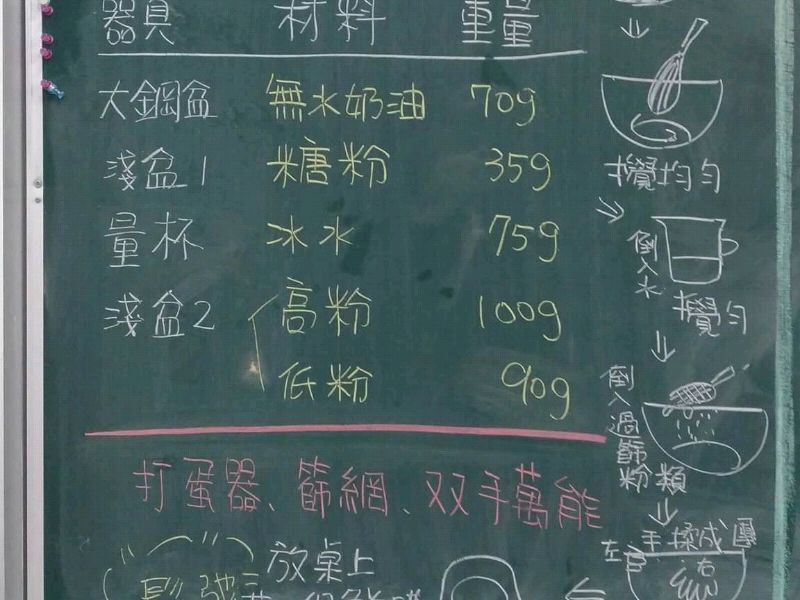 器具 材料 重量
大鋼盆 無水奶油 70g
淺盆1 糖粉 35g
量杯 冰水 75g
淺盆2 高粉 100g
低粉 90g
打蛋器、篩網、双手萬能
鬆弛
放桌上
攪均勻
倒入水
攪勻
倒入過篩粉類
手揉成團
左
右